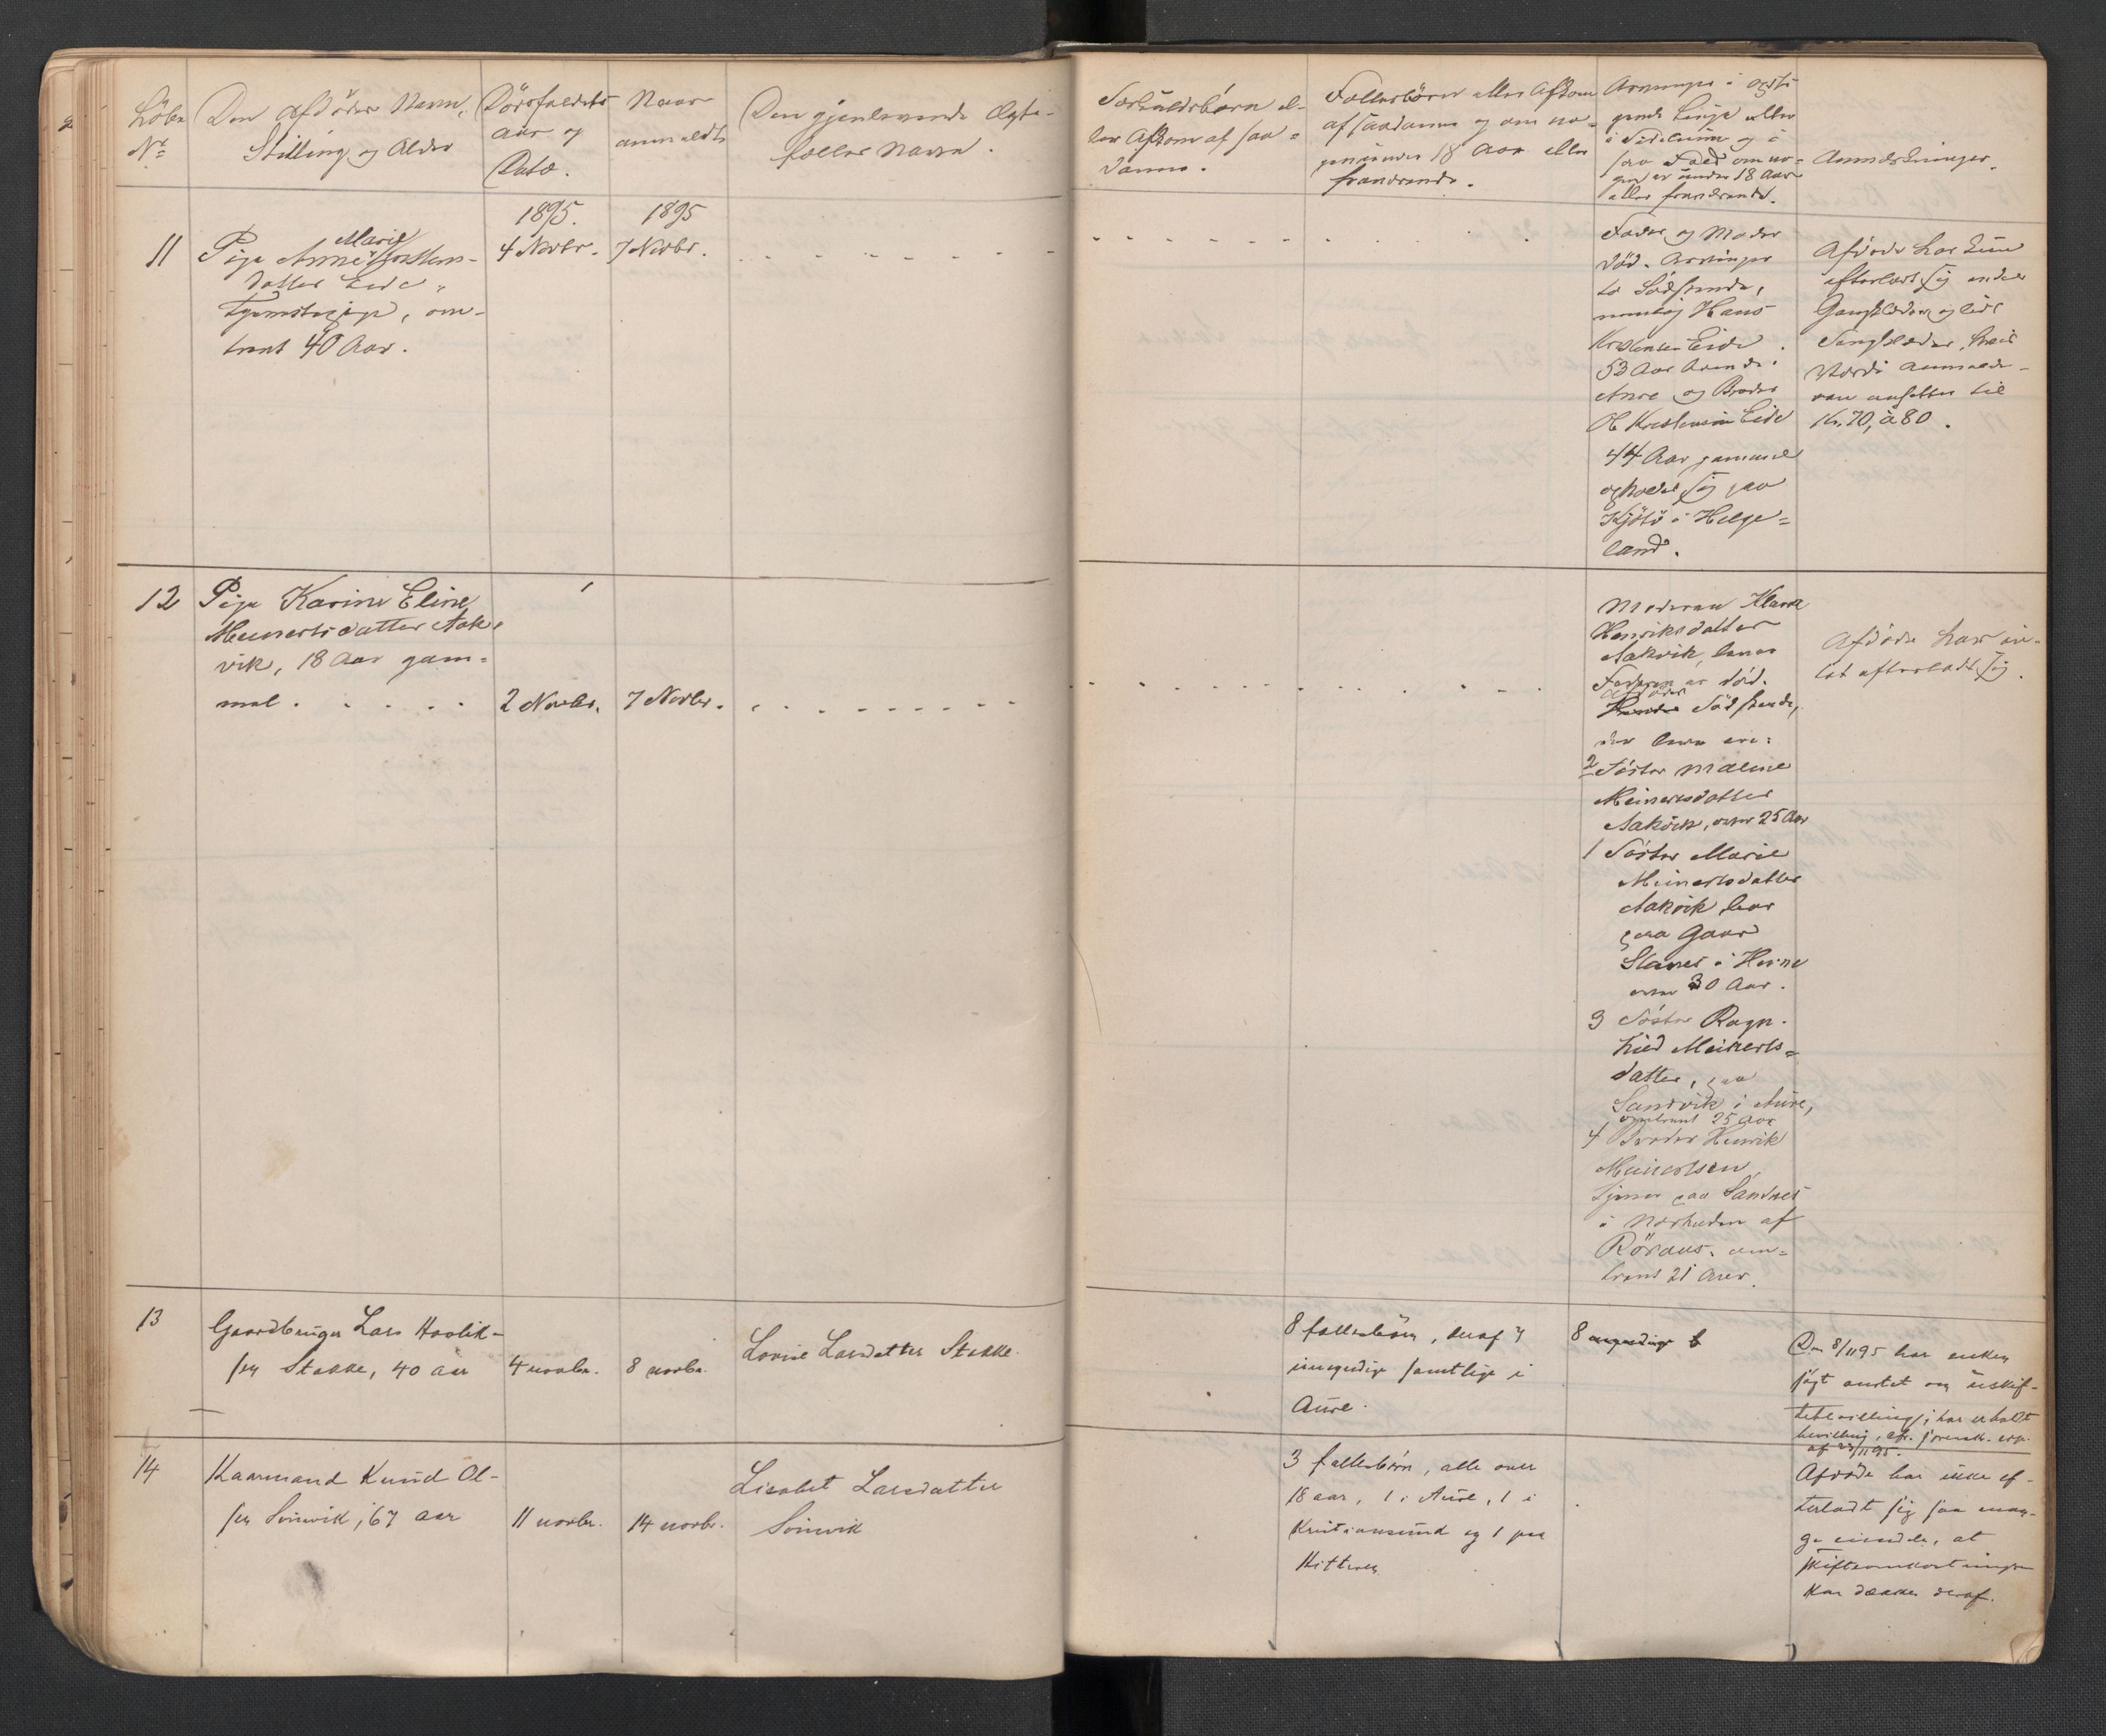 Löbe
No
Den Afdödes Navn,
Stilling og Alder
Dödsfaldets
Aar og
Dato.
Naar
anmeldt
Den gjenlevende Ægte-
fælles Navn.
Særkuldsbørn el-
ler Afkom af saa-
danne.
Fællesbörn eller Afkom
af saadanne og om no-
gen er under 18 Aar eller
fraværende.
Arvinger i opsti-
gende Linje eller
i Sidelinie og i
saa Fald om no-
gen er under 18 Aar
eller fraværende.
Anmærkninger.
1895.
1895
11
Pige Anne Marie Kristens-
datter Eide
Tjenestepige, om-
trent 40 Aar.
4 Novbr.
7 Novbr.
Fader og Moder
död. Arvinger
er Södskende,
nemlig Hans
Kristensen Eide
53 Aar boende i
Aure og Broder
O Kristensen Eide
44 Aar gammel
opholder sig paa
i Helge-
land.
Afdöde har kun
efterladt sig endel
Gangklæder og lidt
Sengklæder, hvis
Værdi Anmelde-
ren ansetter til
Kr. 70, à 80.
12
Pige Karine Eline
Meinertsdatter Aak-
vik, 18 Aar gam-
mel
2 Novbr.
7 Novbr.
Moderen
Henriksdatter
Aakvik, lever
Faderen er död.
Afdödes Södskende,
der leve ere:
2 Söster Maline
Meinertsdatter
Aakvik, over 25 Aar
1 Söster Marie
Meinertsdatter
Aakvik, bor
paa Gaard
Stamnes i Hevne
over 30 Aar.
3 Söster Ragn-
hild Meinerts-
datter, paa
Sandvik i Aure,
omtrent 25 Aar
4 Broder Henrik
Meinertsen,
tjener paa Sandnes
i Nærheden af
Röraas, om-
trent 21 Aar.
Afdöde har in-
tet efterladt sig.
13
Gaardbruger Lars Havlik-
sen Stakke, 40 aar
4 novbr.
8 novbr.
Lovise Larsdatter Stakke
8 fællesbörn, deraf 7
umyndige samtlige i
Aure.
8
Den 8/11 95 har enken
sögt amtet om uskif-
tebevilling; har erholdt
bevilling,
af 23/11 95.
14
Kaarmand Knud Ol-
sen Sninvik, 67 aar
11 novbr.
14 novbr.
Lisabet Larsdatter
Sninvik
3 fællesbörn, alle over
18 aar, 1 i Aure, 1 i
Kristiansund og 1 paa
Hitteren
Afdöde har ikke ef-
terladt sig saa man-
ge midler, at
skifteomkostninger
kan dækkes deraf.